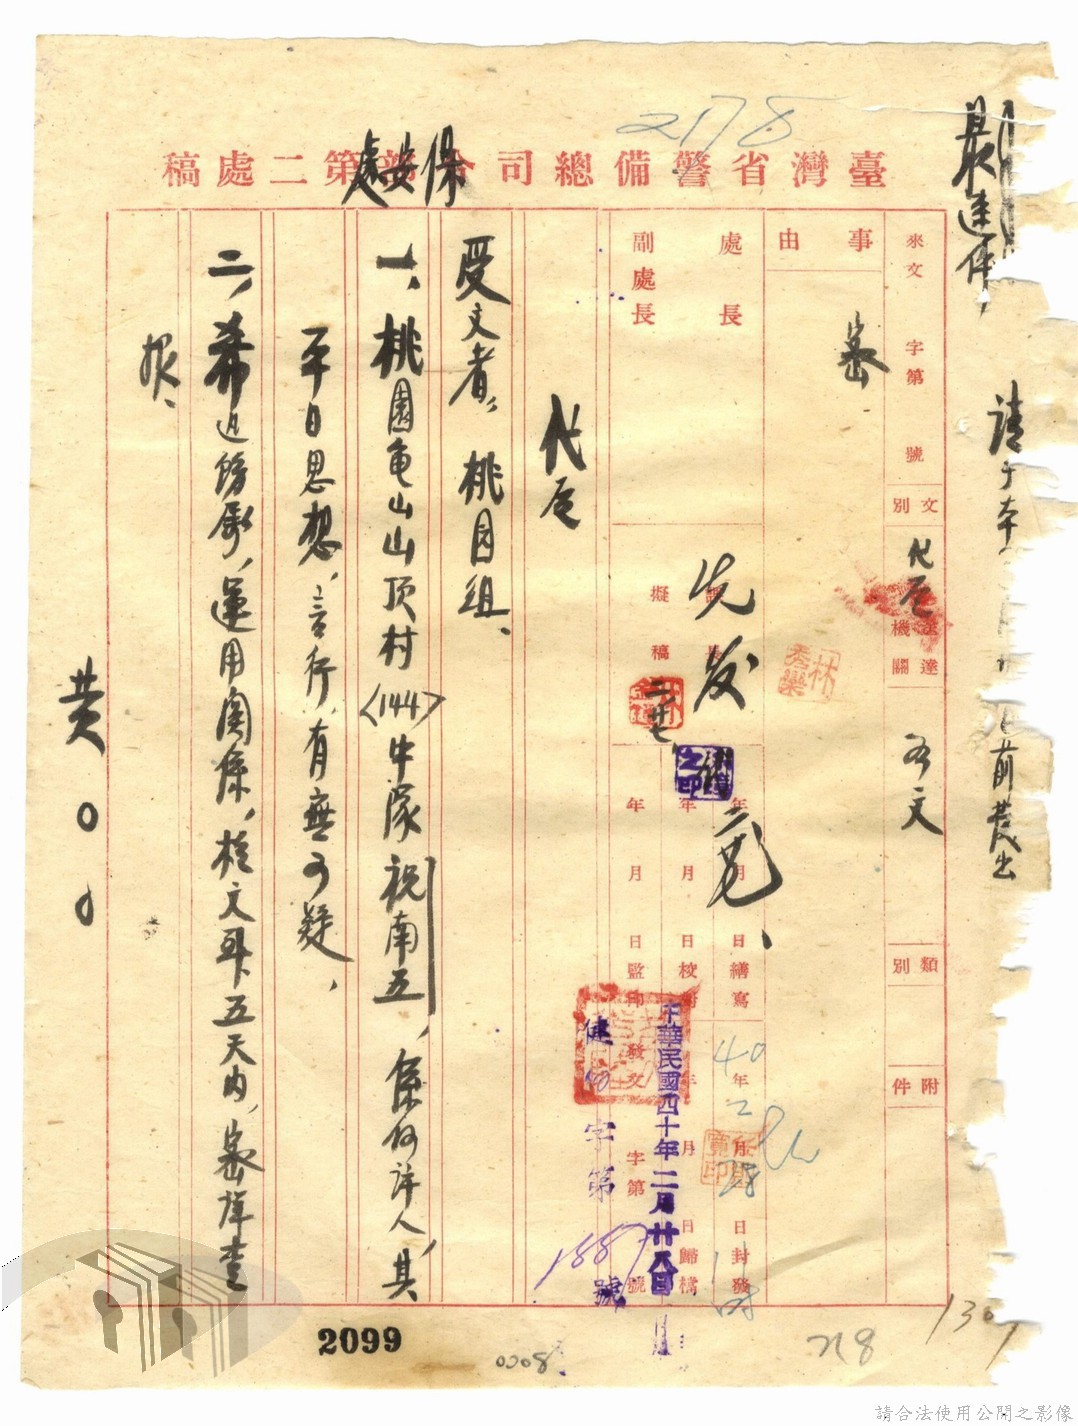 2178
臺灣省警備總司令部第二處稿
保安處
最速件
來文 字第 號
文別 代電
送達機關
類別
附件
事由
密
處長
副處長
先發
擬稿
二廿七
年 月 日繕寫
年 月 日校對
年 月 日監印
40年2月28日封發
中華民國四十年二月廿八日
年 月 日歸檔
發文 字第 號
字第1887號
代電
受文者:桃園組、
一、桃園龜山山頂村〈144〉中隊祝南五,係何許人,其
平日思想、言行,有無可疑、
二、希迅飭屬,運用關係,於文到五天內,密詳查
報、
黃○○
2099
0008
請合法使用公開之影像